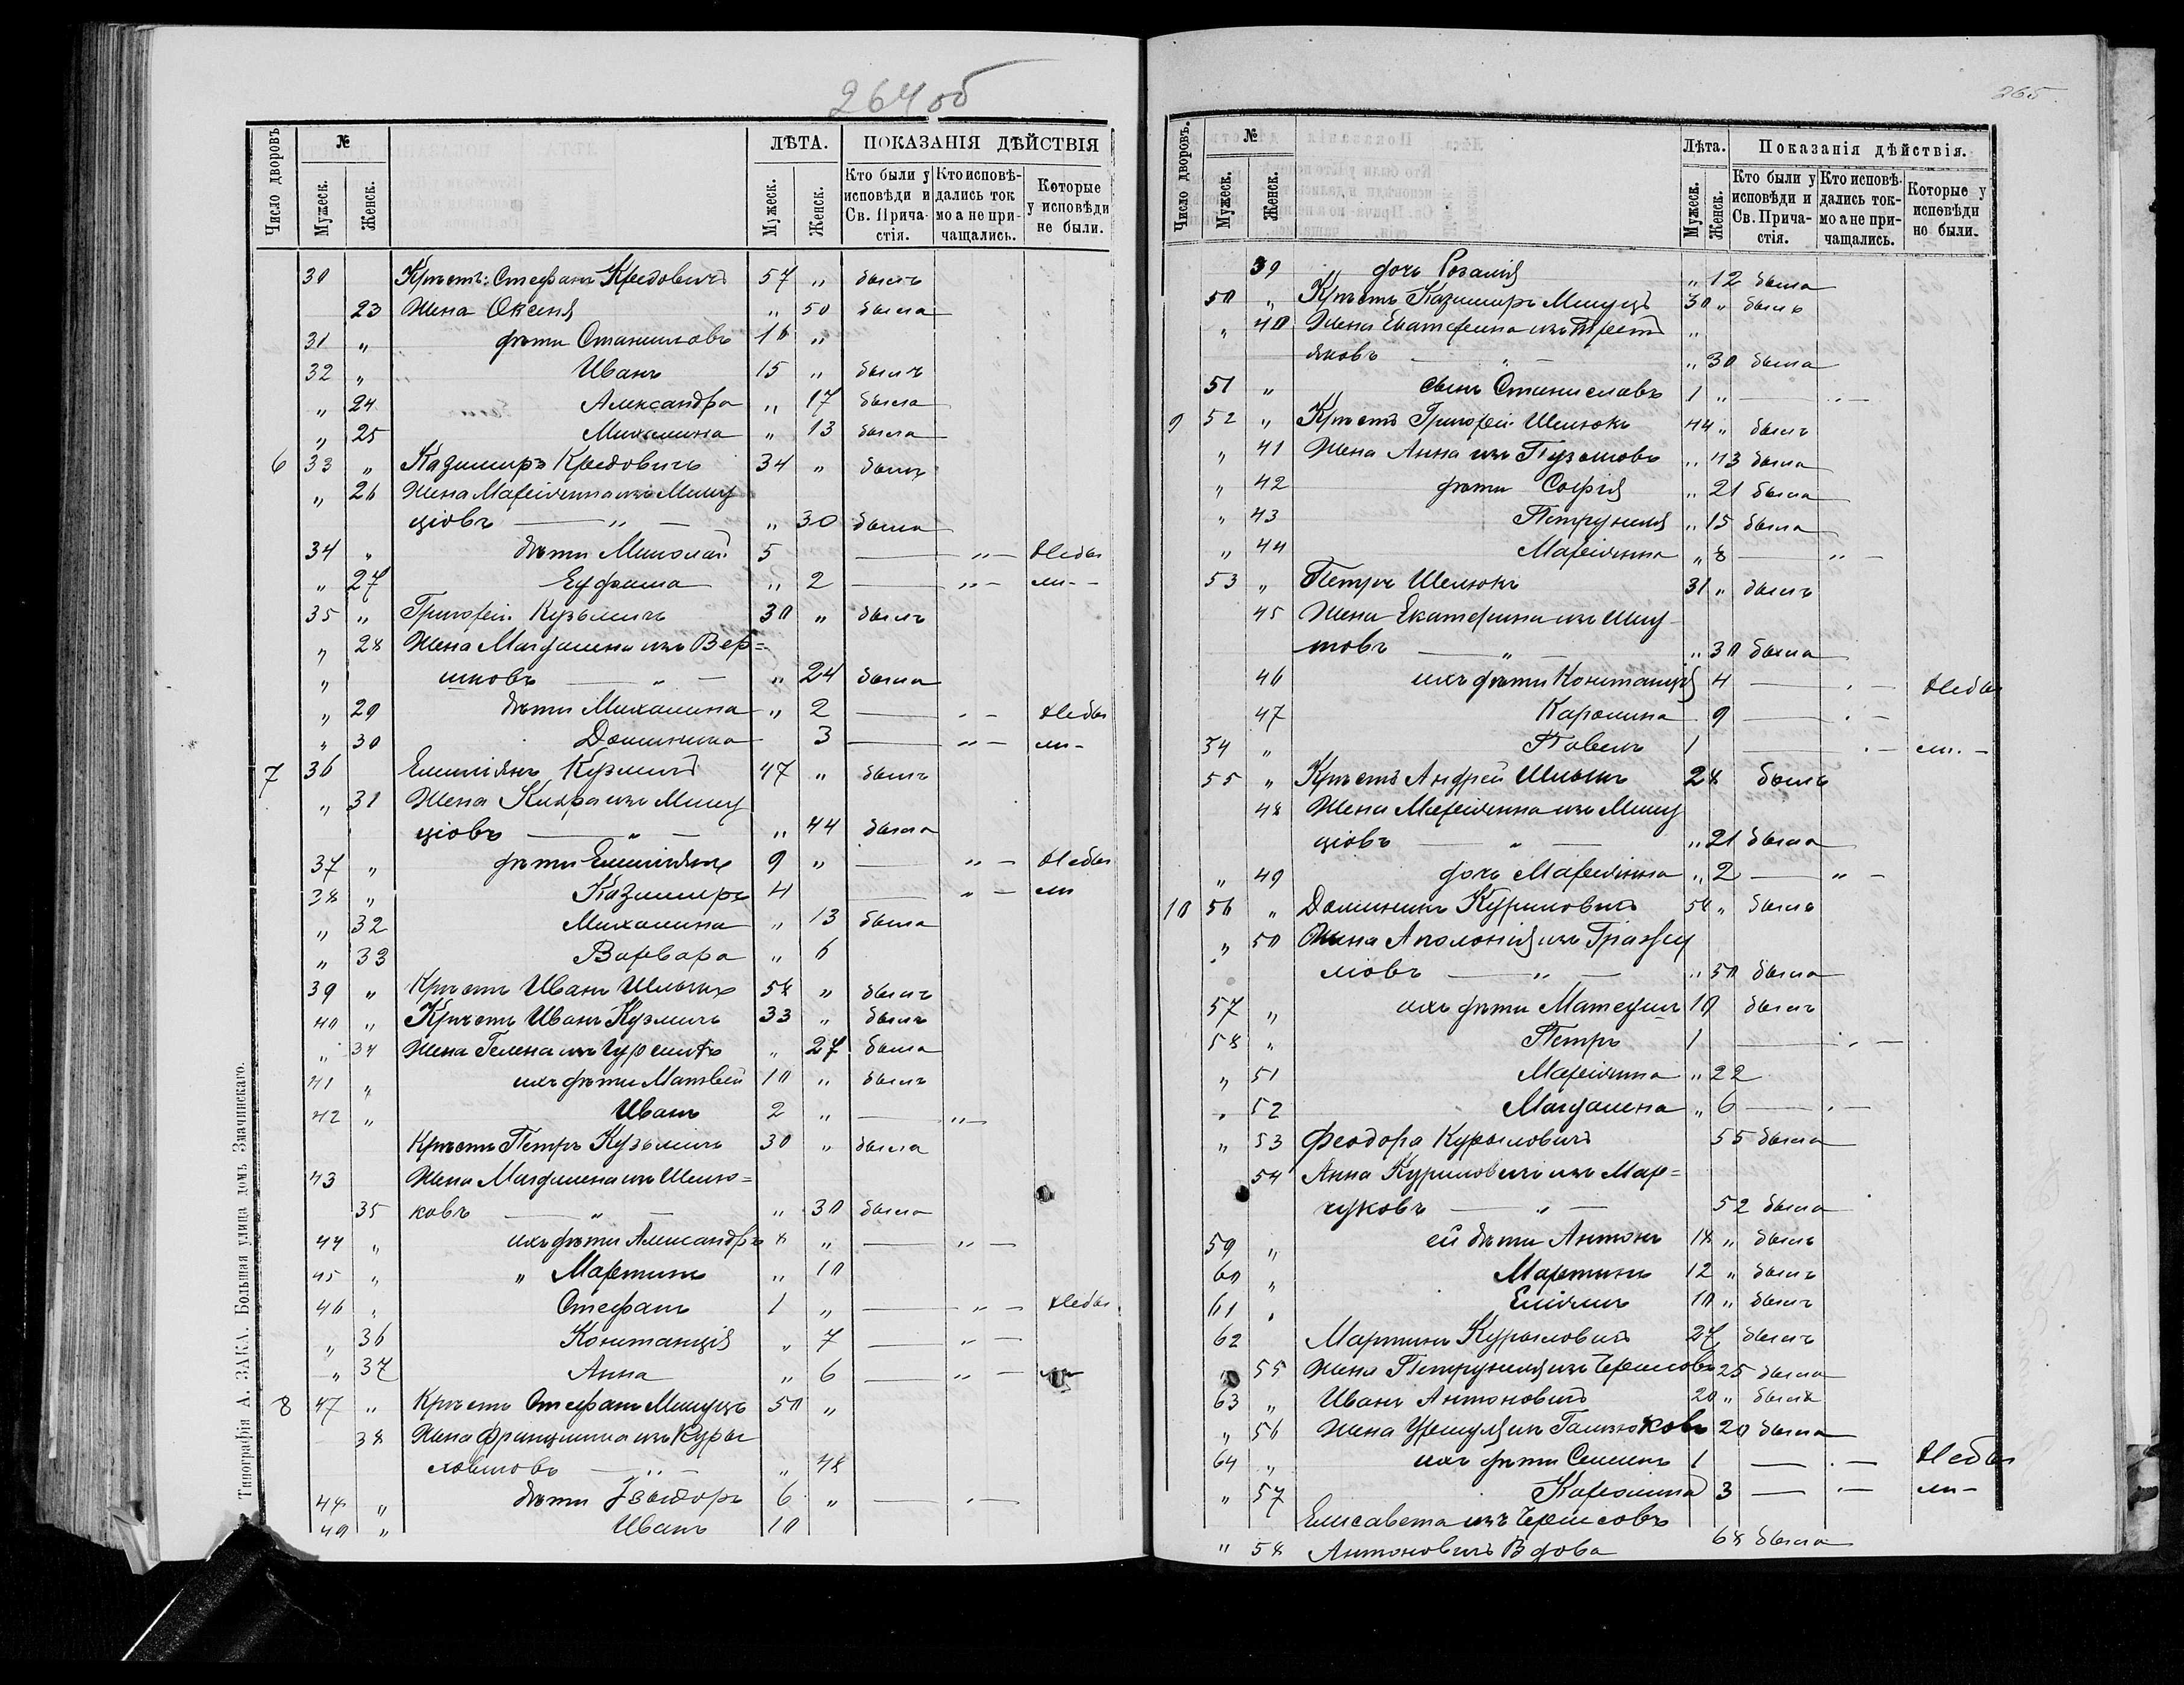 264 об
Число дворовъ
№
Мужеск.
Женск.
ЛѢТА.
Мужеск.
Женск.
ПОКАЗАНІЯ ДѢЙСТВІЯ
Кто были у исповѣди и Св. Прича-стія.
Кто исповѣ-дались ток мо а не при-чащались.
Которые у исповѣди не были.
30 Крѣст: Стефанъ Кредовичъ 57 „ былъ
23 Жена Оксенія „ 50 была
31 „ дѣти Станиславъ 16 „
32 „ Иванъ 15 „ былъ
„ 24 Александра „ 17 была
„ 25 Михалина „ 13 была
6 33 „ Казимиръ Кредовичъ 34 „ былъ
„ 26 Жена Маріянна изъ Мину
ціовъ — „ — „ 30 была
34 „ дѣти Миколай 5 — „ — Небы
„ 27 Еуфалia „ 2 — „ — ли -
35 „ Григорій Кузьмичъ 30 „ былъ
„ 28 Жена Магдалена изъ Вер=
„ шковъ — „ — „ 24 была
„ 29 дѣти Михалина „ 2 — „ — Небы
„ 30 Доминика 3 — „ — ли -
7 36 Емиліянъ Кузмичъ 47 „ былъ
„ 31 Жена изъ Мину
ціовъ — „ — „ 44 была
37 „ дѣти Емиліянъ 9 „ — „ — Небы
38 „ Казимиръ 4 — „ — ли
„ 32 Михалина „ 13 была
„ 33 Варвара „ 6
39 „ Крѣст Иванъ 58 „ былъ
40 „ Крѣст Иванъ Кузмичъ 33 „ былъ
„ 34 Жена Гелена изъ 27 была
41 „ ихъ дѣти Матвей 10 „ былъ
42 „ Иванъ 2 „ — „ —
Крѣст Петръ Кузьмичъ 30 „ была
43 Жена Магдалена изъ Шелю=
35 ковъ — „ — „ 30 была
44 „ ихъ дѣти Александръ 8 „ — „ —
45 „ „ Мартинъ „ 10
46 „ Стефанъ 1 „ — „ — Небы
„ 36 Констанція „ 7 — „ —
„ 37 Анна „ 6 — „ — ли
8 47 „ Крѣст Стефанъ Минуцъ 50 „
38 Жена Францишка изъ Куры
ловичовъ — „ — „ 48
48 „ дѣти Ізыдоръ 6 „ — „ —
49 „ Иванъ 10
Типографія А. ЗАКА. Большая улица домъ Значинскаго.
265
Число дворовъ.
№
Мужеск.
Женск.
Лѣта.
Мужеск.
Женск.
Показанія дѣйствія.
Кто были у исповѣди и Св. Прича-стія.
Кто исповѣ-дались ток-мо а не при-чащались.
Которые у исповѣди не были.
39 дочь Розалія „ 12 была
50 „ Крѣст Казимиръ Минуцъ 30 „ былъ
„ 40 Жена Екатерина изъ Трет „
яковъ — „ — „ 30 была
51 „ сынъ Станиславъ 1 „ — „ —
9 52 „ Крѣст Григорій Шелюкъ 44 „ былъ
„ 41 Жена Анна изъ „ 43 была
„ 42 дѣти Софія „ 21 была
„ 43 Петрунеля „ 15 была
„ 44 Маріянна „ 8 — „ —
53 „ Петръ Шелюкъ 31 „ былъ
45 Жена Екатерина изъ
товъ — „ — „ 30 была
46 ихъ дѣти Констанція 4 — „ — Небы
47 Каролина 9 — „ —
54 „ Павелъ 1 — „ — ли. -
55 „ Крѣст Андрей 28 былъ
48 Жена Маріянна изъ Мину
ціовъ — „ — „ 21 была
„ 49 дочь Маріянна „ 2 — „ —
10 56 „ Доминикъ Куриловичъ 58 „ былъ
„ 50 Жена Аполонія изъ
ліовъ — „ — „ 50 была
57 „ ихъ дѣти 10 былъ
58 „ Петръ 1 — „ —
„ 51 Маріянна „ 22
„ 52 Магдалена „ 6 — „ —
„ 53 Феодора Куриловичъ 55 была
54 Анна Куриловичъ изъ Мар=
чуковъ — „ — 52 была
59 „ ей дѣти Антонъ 18 „ былъ
60 „ Мартинъ 12 „ былъ
61 „ 10 „ былъ
62 Мартинъ Куриловичъ 27 былъ
„ 55 Жена Петрунеля изъ 25 была
63 „ Иванъ Антоновичъ 20 „ былъ
„ 56 Жена Уршуля изъ 20 была
64 „ ихъ дѣти Семенъ 1 — „ — Небы
„ 57 Каролина 3 — „ — ли -
Елисавета изъ
„ 58 Антоновичъ Вдова 68 была